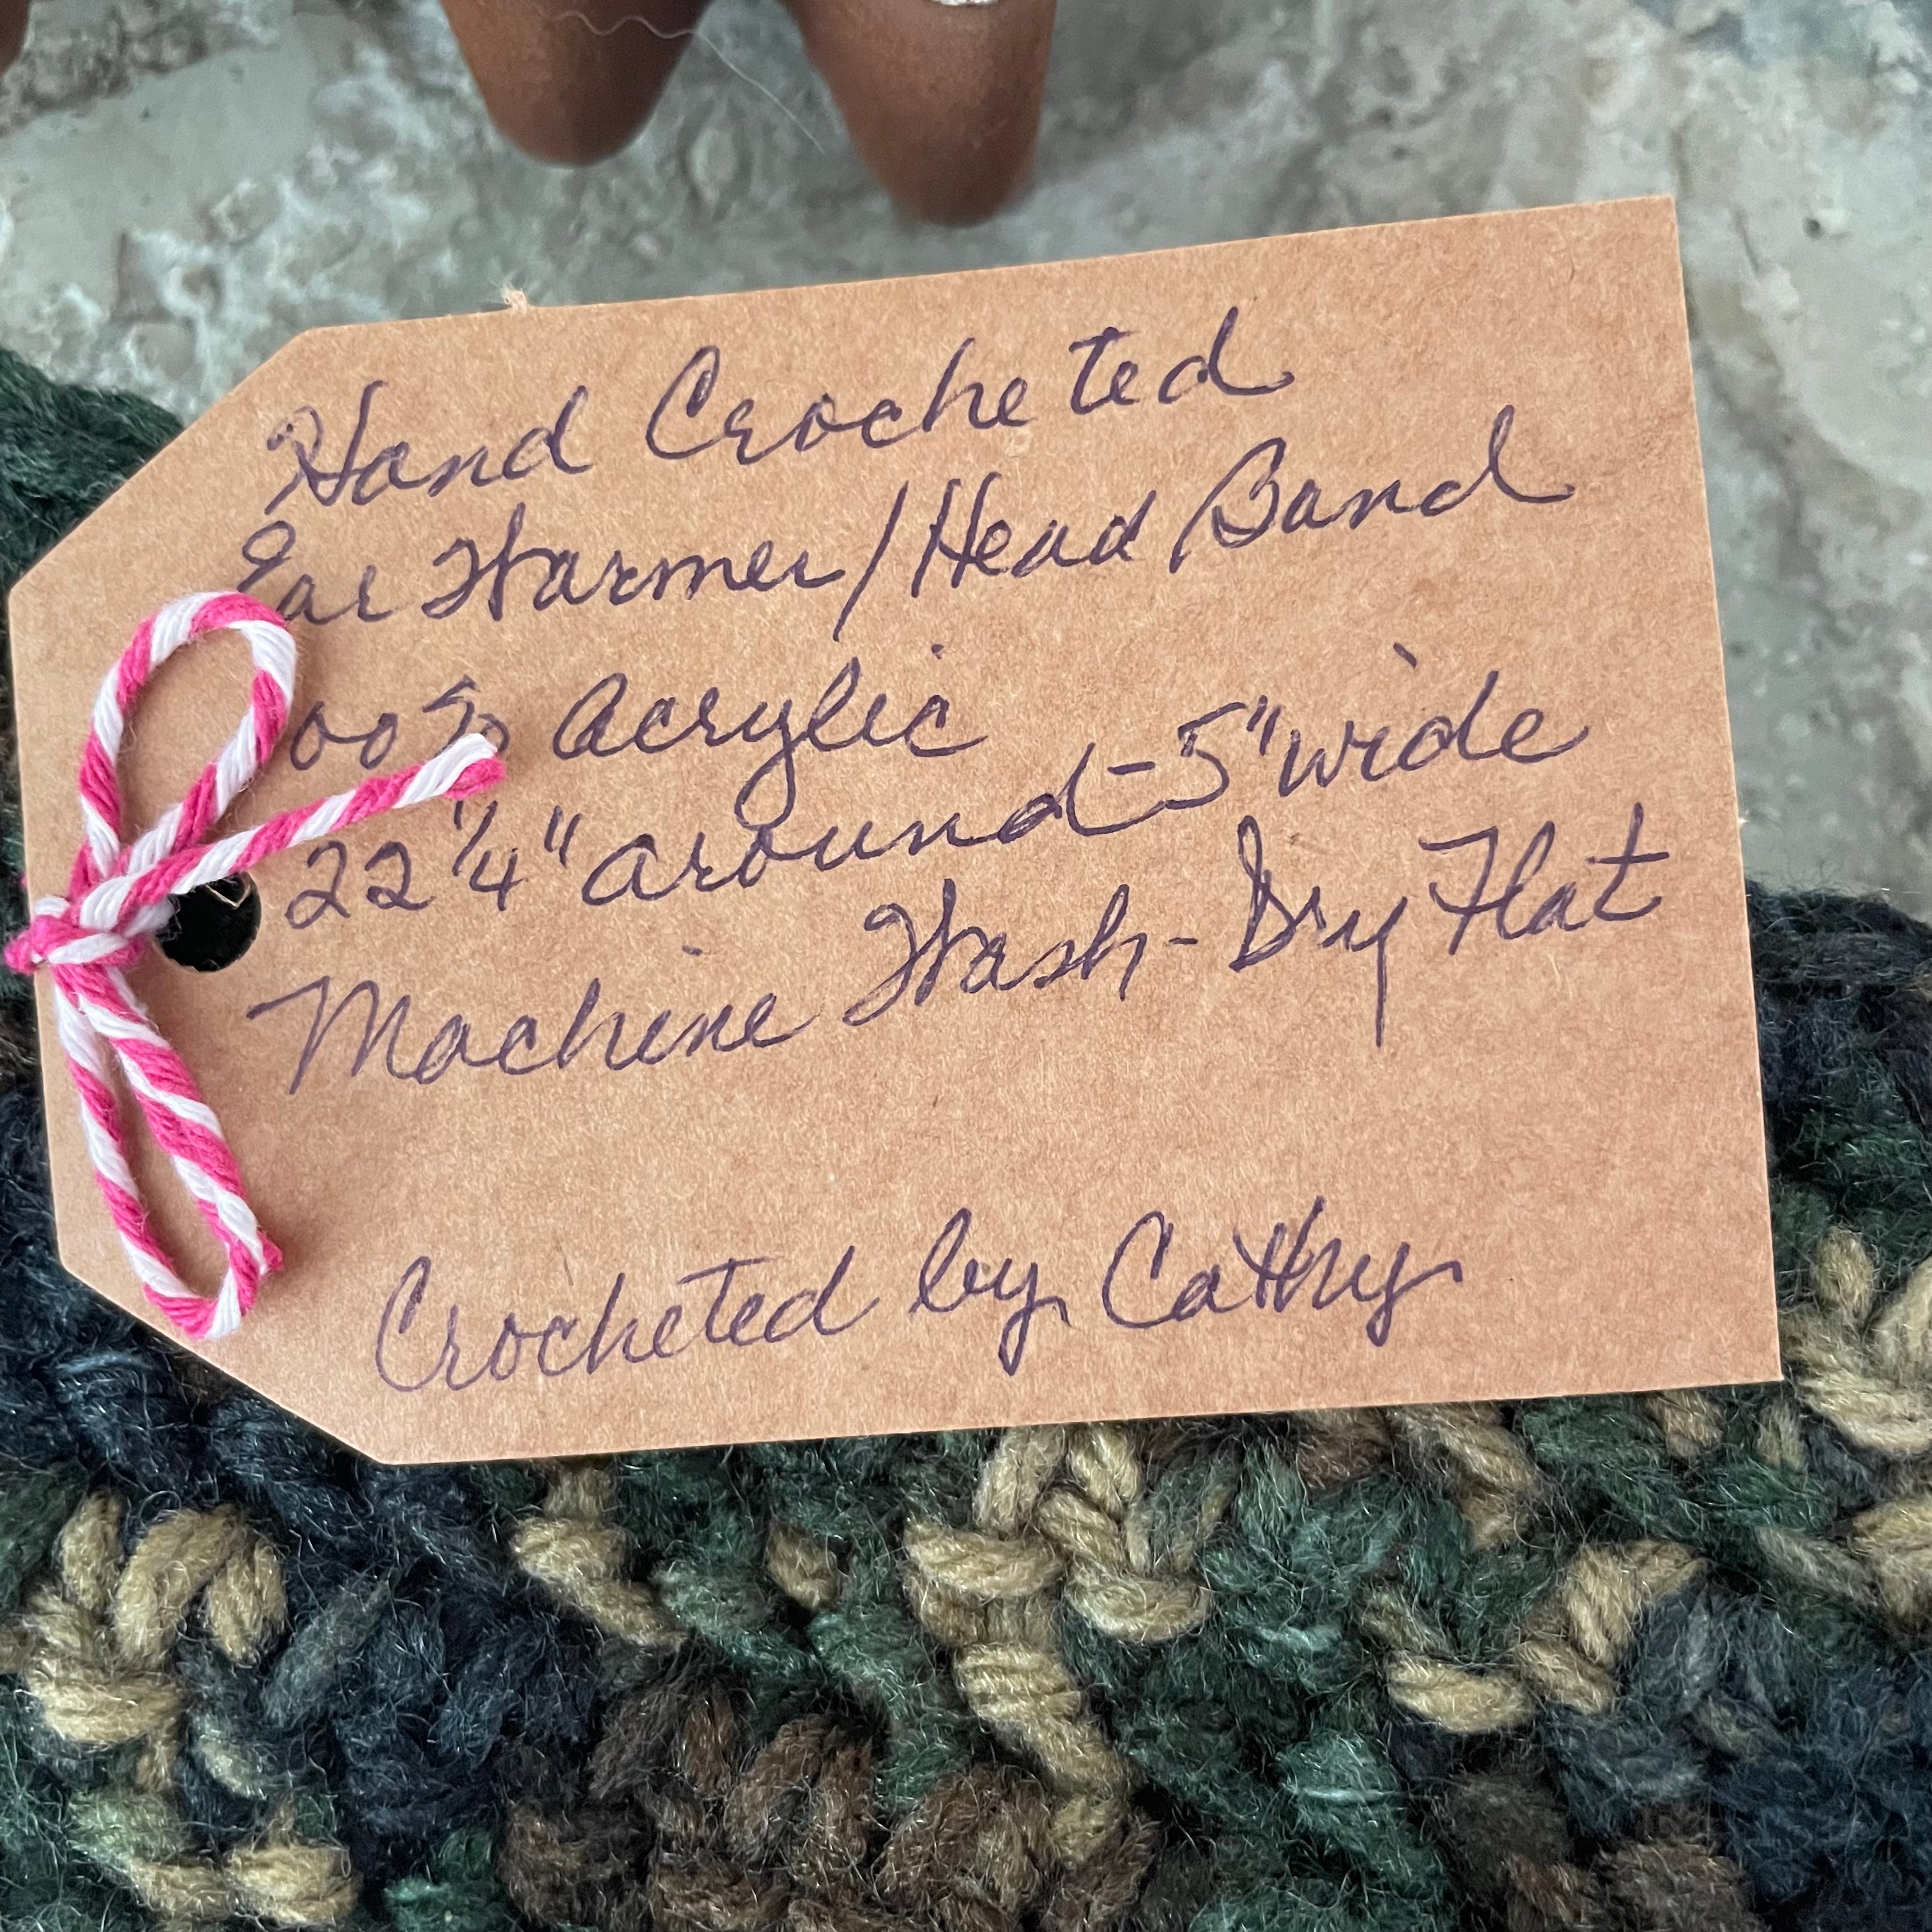 Hand Crocheted
Ear Warmer/Head Band
00% Acrylic
22 1/4" around-5" wide
Machine Wash-Dry Flat
Crocheted by Cathy